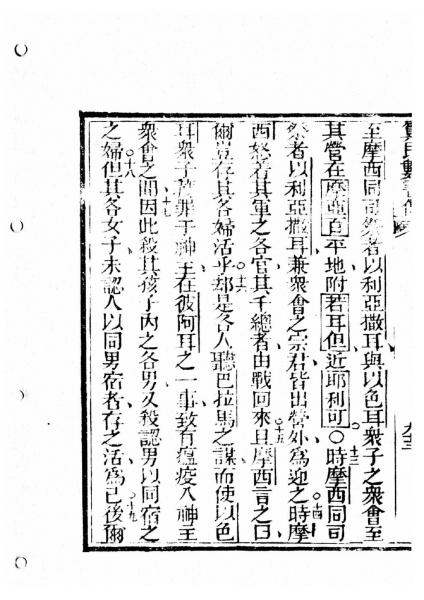 至摩西同司祭者以利亞撒耳與以色耳衆子之衆會至
其營在摩亞百平地附若耳但近耶利可○時摩西同司十三
祭者以利亞撒耳兼衆會之宗君皆出營外爲迎之時摩十四
西怒着其軍之各官其千總者由戰回來且摩西言之曰十五
爾豈存其各婦活乎却是各人聽巴拉馬之謀而使以色十六
耳衆子獲罪于神主在彼阿耳之一事致有瘟疫入神主
衆會之間因此殺其孩子內之各男又殺認男以同宿之十七
之婦但其各女子未認人以同男宿者存之活爲己後爾十八十九